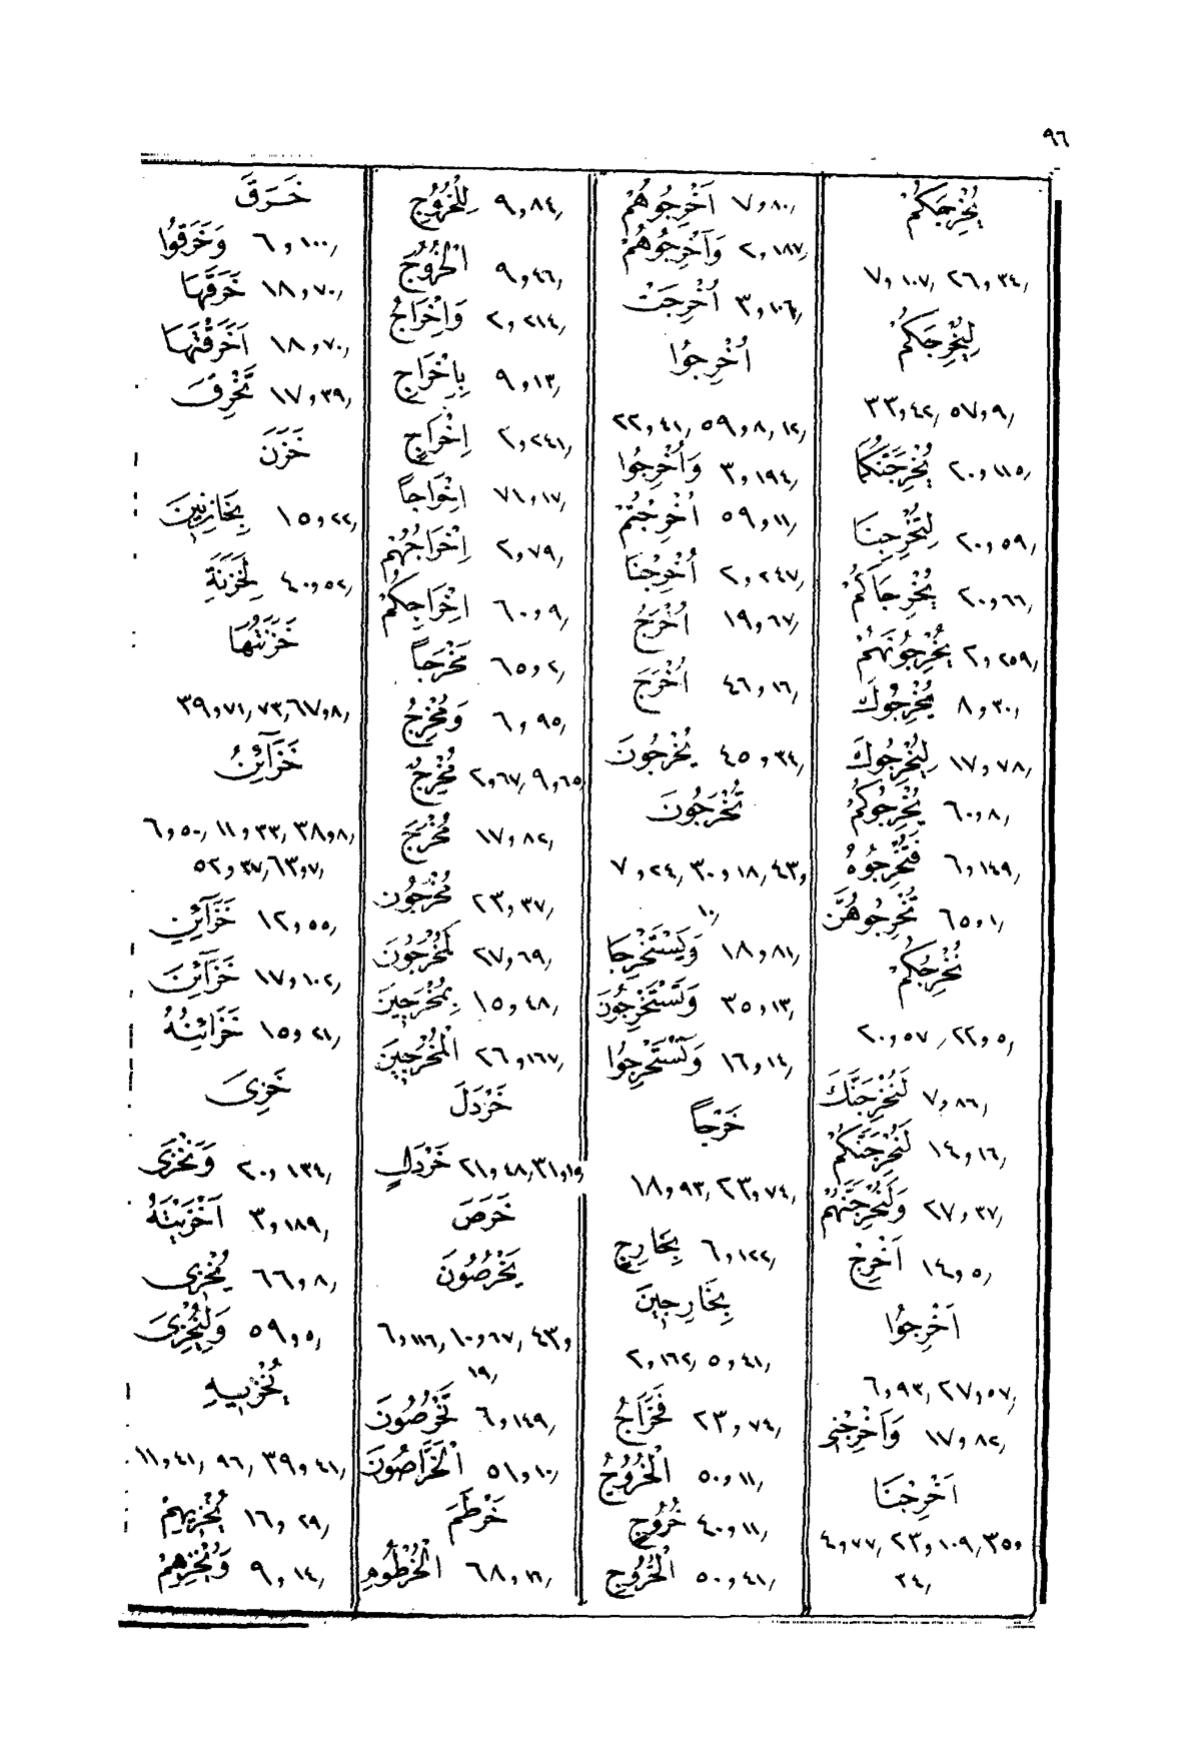 ٩٦
يُخْرِجَكُمْ
٧و١٠٧, ٢٦و٣٤,
لِيُخْرِجَكُمْ
٣٣و٤٢, ٥٧و٩,
يُخْرِجَنَّكُمَا ٢٠و١١٥,
لِتُخْرِجَنَا ٢٠و٥٩,
يُخْرِجَاكُمْ ٢٠و٦٦,
يُخْرِجُونَهُمْ ٢و٢٥٩,
يُخْرِجُوكَ ٨و٣٠,
لِيُخْرِجُوكَ ١٧و٧٨,
يُخْرِجُوكُمْ ٦٠و٨,
فَتُخْرِجُوهُ ٦و١٤٩,
تُخْرِجُوهُنَّ ٦٥و١,
نُخْرِجُكُمْ
٢٠و٥٧, ٢٢و٥,
لَنُخْرِجَنَّكَ ٧و٨٦,
لَنُخْرِجَنَّكُمْ ١٤و١٦,
وَلَنُخْرِجَنَّهُمْ ٢٧و٣٧,
اَخْرِجْ ١٤و٥,
اَخْرِجُوا
٦و٩٣, ٢٧و٥٧,
وَاَخْرِجْنِى ١٧و٨٢,
اَخْرِجْنَا
٤و٧٧, ٢٣و١٠٩, ٣٥و
٣٤,
اَخْرِجُوهُمْ ٧و٨٠,
وَاَخْرِجُوهُمْ ٢و١٨٧,
اُخْرِجَتْ ٣و١٠٦,
اُخْرِجُوا
٢٢و٤١, ٥٩و٨, ١٢,
وَاُخْرِجُوا ٣و١٩٤,
اُخْرِجْتُمْ ٥٩و١١,
اُخْرِجْنَا ٢و٢٤٧,
اُخْرَجُ ١٩و٦٧,
اُخْرَجَ ٤٦و١٦,
يُخْرَجُونَ ٤٥و٣٤,
تُخْرَجُونَ
٧و٢٤, ٣٠و١٨, ٤٣و
١٠,
وَيَسْتَخْرِجَا ١٨و٨١,
وَتَسْتَخْرِجُونَ ٣٥و١٣,
وَتَسْتَخْرِجُوا ١٦و١٤,
خَرْجاً
١٨و٩٣, ٢٣و٧٤,
بِخَارِجٍ ٦و١٢٢,
بِخَارِجِينَ
٢و١٦٢, ٥و٤١,
فَخَرَاجُ ٢٣و٧٤,
الْخُرُوجُ ٥٠و١١,
خُرُوجٍ ٤٠و١١,
الْخُرُوجِ ٥٠و٤١,
لِلْخُرُوجِ ٩و٨٤,
الْخُرُوجَ ٩و٤٦,
وَاِخْرَاجُ ٢و٢١٤,
بِاِخْرَاجِ ٩و١٣,
اِخْرَاجٍ ٢و٢٤١,
اِخْرَاجاً ٧١و١٧,
اِخْرَاجُهُمْ ٢و٧٩,
اِخْرَاجِكُمْ ٦٠و٩,
مَخْرَجاً ٦٥و٢,
وَمُخْرِجُ ٦و٩٥,
مُخْرِجٌ ٢و٦٧, ٩و٦٥
مُخْرَجَ ١٧و٨٢,
مُخْرَجُونَ ٢٣و٣٧,
لَمُخْرَجُونَ ٢٧و٦٩,
بِمُخْرَجِينَ ١٥و٤٨,
الْمُخْرَجِينَ ٢٦و١٦٧,
خَرْدَلَ
خَرْدَلٍ ٢١و٤٨, ٣١و١٥
خَرَصَ
يَخْرُصُونَ
٦و١١٦, ١٠و٦٧, ٤٣و
١٩,
تَخْرُصُونَ ٦و١٤٩,
الْخَرَّاصُونَ ٥١و١٠,
خَرْطَمَ
الْخُرْطُومِ ٦٨و١٦,
خَرَقَ
وَخَرَقُوا ٦و١٠٠,
خَرَقَهَا ١٨و٧٠,
اَخَرَقْتَهَا ١٨و٧٠,
تَخْرِقَ ١٧و٣٩,
خَزَنَ
بِخَازِنِينَ ١٥و٢٢,
لِخَزَنَةِ ٤٠و٥٢,
خَزَنَتُهَا
٣٩و٧١, ٧٣, ٦٧و٨,
خَزَآئِنُ
٦و٥٠, ١١و٣٣, ٣٨و٨,
٥٢و٣٧, ٦٣و٧,
خَزَآئِنِ ١٢و٥٥,
خَزَآئِنَ ١٧و١٠٢,
خَزَائِنُهُ ١٥و٢١,
خَزِىَ
وَنَخْزَى ٢٠و١٣٤,
اَخْزَيْتَهُ ٣و١٨٩,
يُخْزِى ٦٦و٨,
وَلِيُخْزِىَ ٥٩و٥,
يُخْزِيهِ
١١و٤١, ٩٦, ٣٩و٤١,
يُخْزِيهِمْ ١٦و٢٩,
وَيُخْزِهِمْ ٩و١٤,